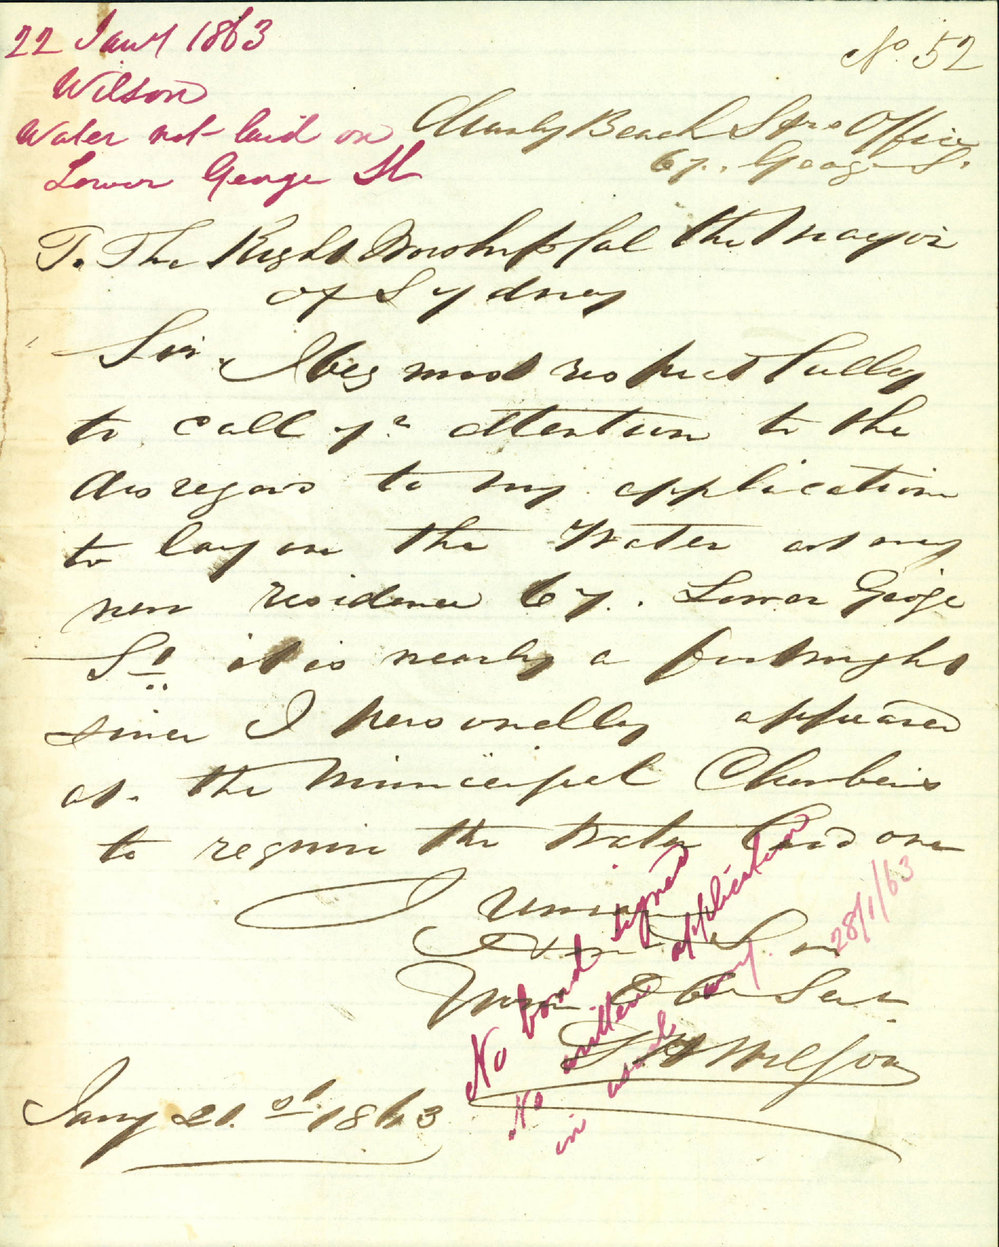 22 Jany 1863
Wilson
Water not laid on
Lower George St
No. 52
Manly Beach Strs Office
67. George St.
To The Right Worshipful the Mayor
of Sydney
Sir. I beg most respectfully
to call yr attention to the
disregard to my application
to lay on the Water at my
new residence 67. Lower George
St it is nearly a fortnight
since I personally appeared
at the Municipal Chambers
to require the Water laid on
I remain
Sir
Your Obt Servt
Wilson
Jany 21st 1863
No bond signed
No written application
in usual way.
28/1/63